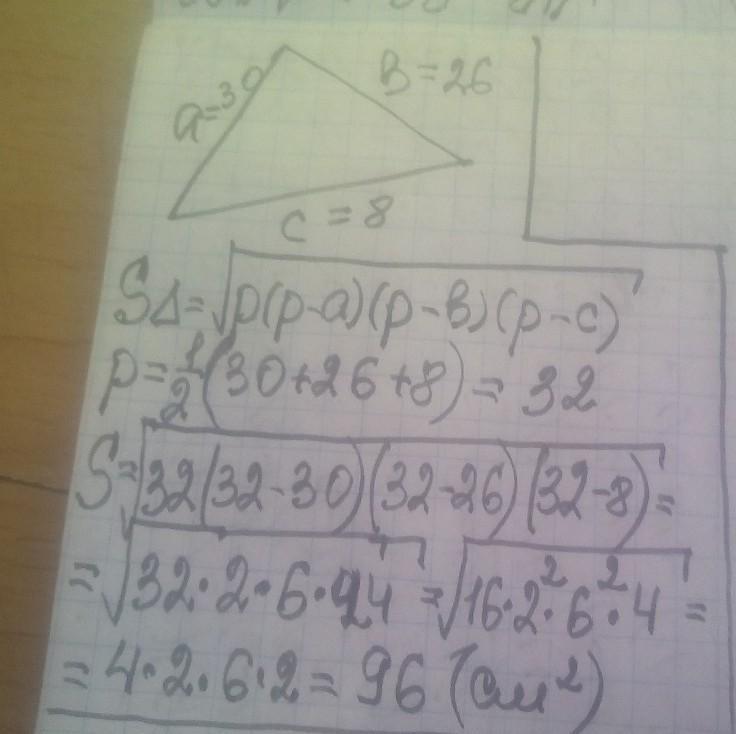 a=30
в=26
c=8
SΔ=√p(p-a)(p-в)(p-c)
p=½(30+26+8)=32
S=√32(32-30)(32-26)(32-8)=
=√32·2·6·24=√16·2²·6²·4=
=4·2·6·2=96 (см²)